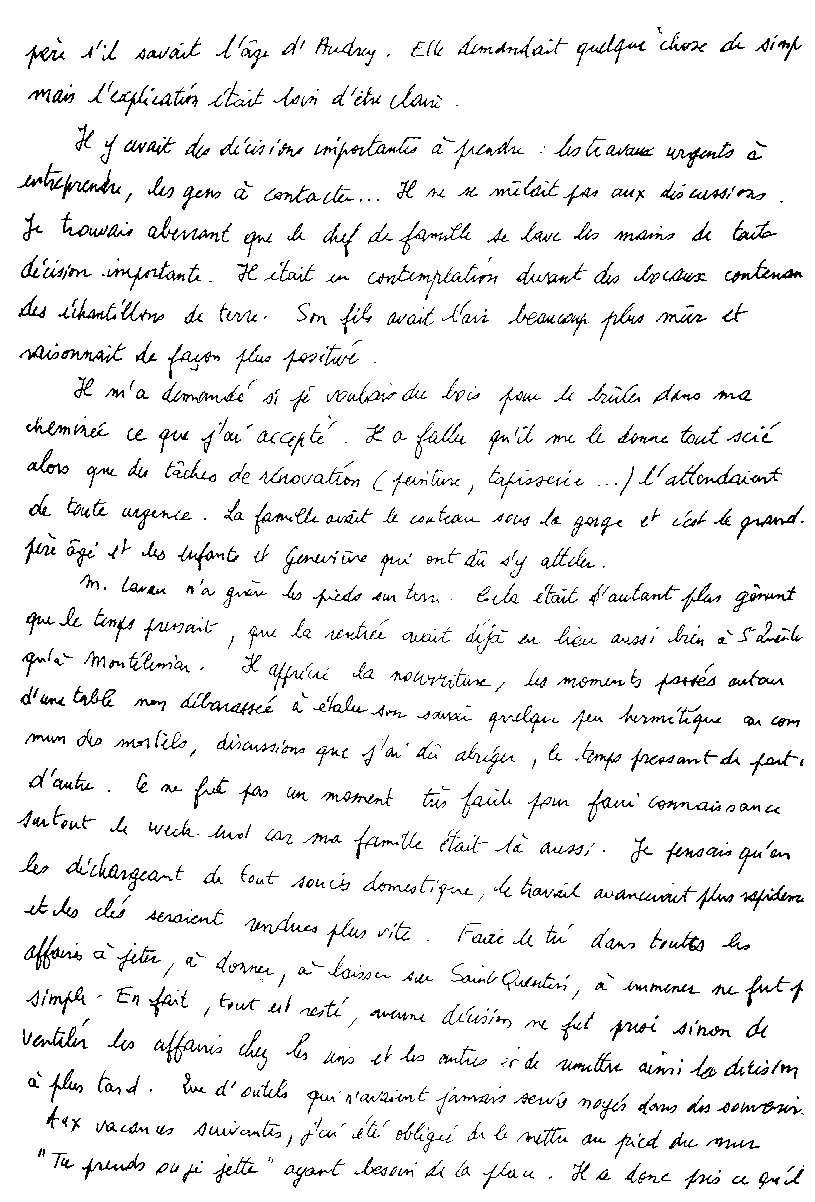 père s'il savait l'âge d'Audrey. Elle demandait quelque chose de simp
mais l'explication était loin d'être claire.
Il y avait des décisions importantes à prendre : les travaux urgents à
entreprendre, les gens à contacter... Il ne se mêlait pas aux discussions.
Je trouvais aberrant que le chef de famille se lave les mains de toute
décision importante. Il était en contemplation devant des bocaux contenan
des échantillons de terre. Son fils avait l'air beaucoup plus mûr et
raisonnait de façon plus positive.
Il m'a demandé si je voulais du bois pour le brûler dans ma
cheminée ce que j'ai accepté. Il a fallu qu'il me le donne tout scié
alors que des tâches de rénovation (peinture, tapisserie...) l'attendaient
de toute urgence. La famille avait le couteau sous la gorge et c'est le grand-
père âgé et les enfants et Geneviève qui ont dû s'y atteler.
M. Lavau n'a guère les pieds sur terre. Cela était d'autant plus gênant
que le temps pressait, que la rentrée avait déjà eu lieu aussi bien à
qu'à Montélimar. Il apprécie la nourriture, les moments passés autour
d'une table non débarassée à étaler son savoir quelque peu hermétique au com
mun des mortels, discussions que j'ai dû abréger, le temps pressant de part
d'autre. Ce ne fut pas un moment très facile pour faire connaissance
surtout le week-end car ma famille était là aussi. Je pensais qu'en
les déchargeant de tout soucis domestique, le travail avancerait plus rapidem
et les clés seraient rendues plus vite. Faire le tri dans toutes les
affaires à jeter, à donner, à laisser sur Saint Quentin, à emmener ne fut p
simple. En fait, tout est resté, aucune décision ne fut prise sinon de
ventiler les affaires chez les uns et les autres et de remettre ainsi la décision
à plus tard. Que d'outils qui n'avaient jamais servis noyés dans des souvenirs.
Aux vacances suivantes, j'ai été obligée de le mettre au pied du mur
"Tu prends ou je jette" ayant besoin de la place. Il a donc pris ce qu'il